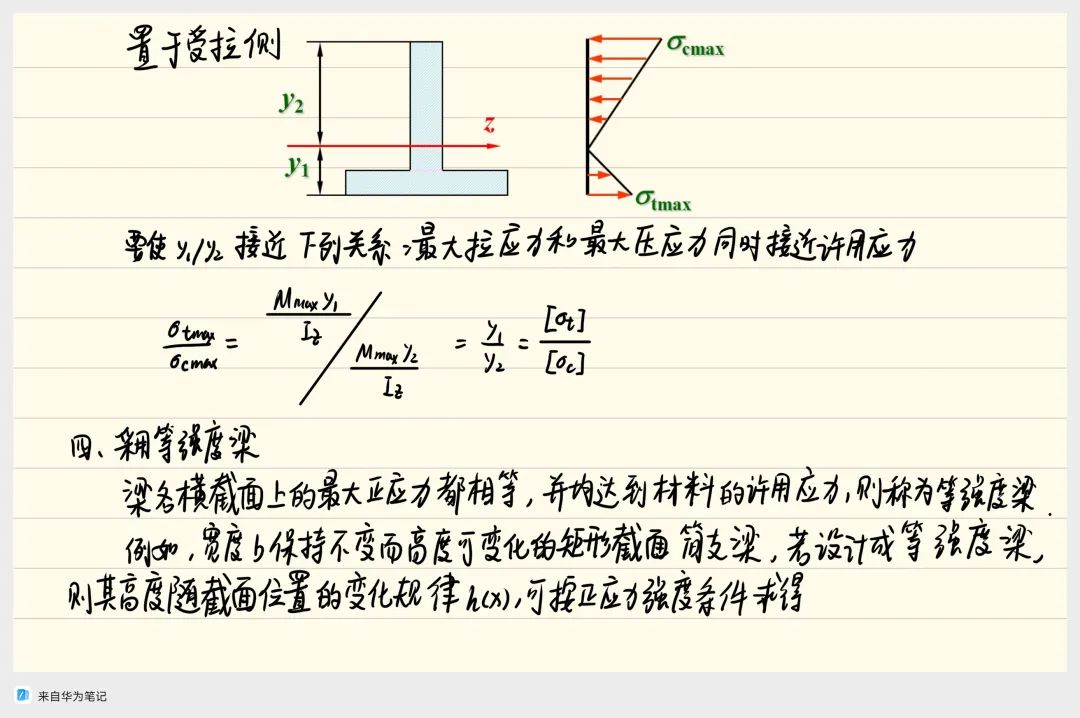 置于受拉侧
y2
z
y1
σcmax
σtmax
要使 y1/y2 接近下列关系：最大拉应力和最大压应力同时接近许用应力
σtmax/σcmax = (Mmax y1/Iz)/(Mmax y2/Iz) = y1/y2 = [σt]/[σc]
四、采用等强度梁
梁各横截面上的最大正应力都相等，并均达到材料的许用应力，则称为等强度梁.
例如，宽度b保持不变而高度可变化的矩形截面简支梁，若设计成等强度梁，
则其高度随截面位置的变化规律h(x)，可按正应力强度条件求得
来自华为笔记